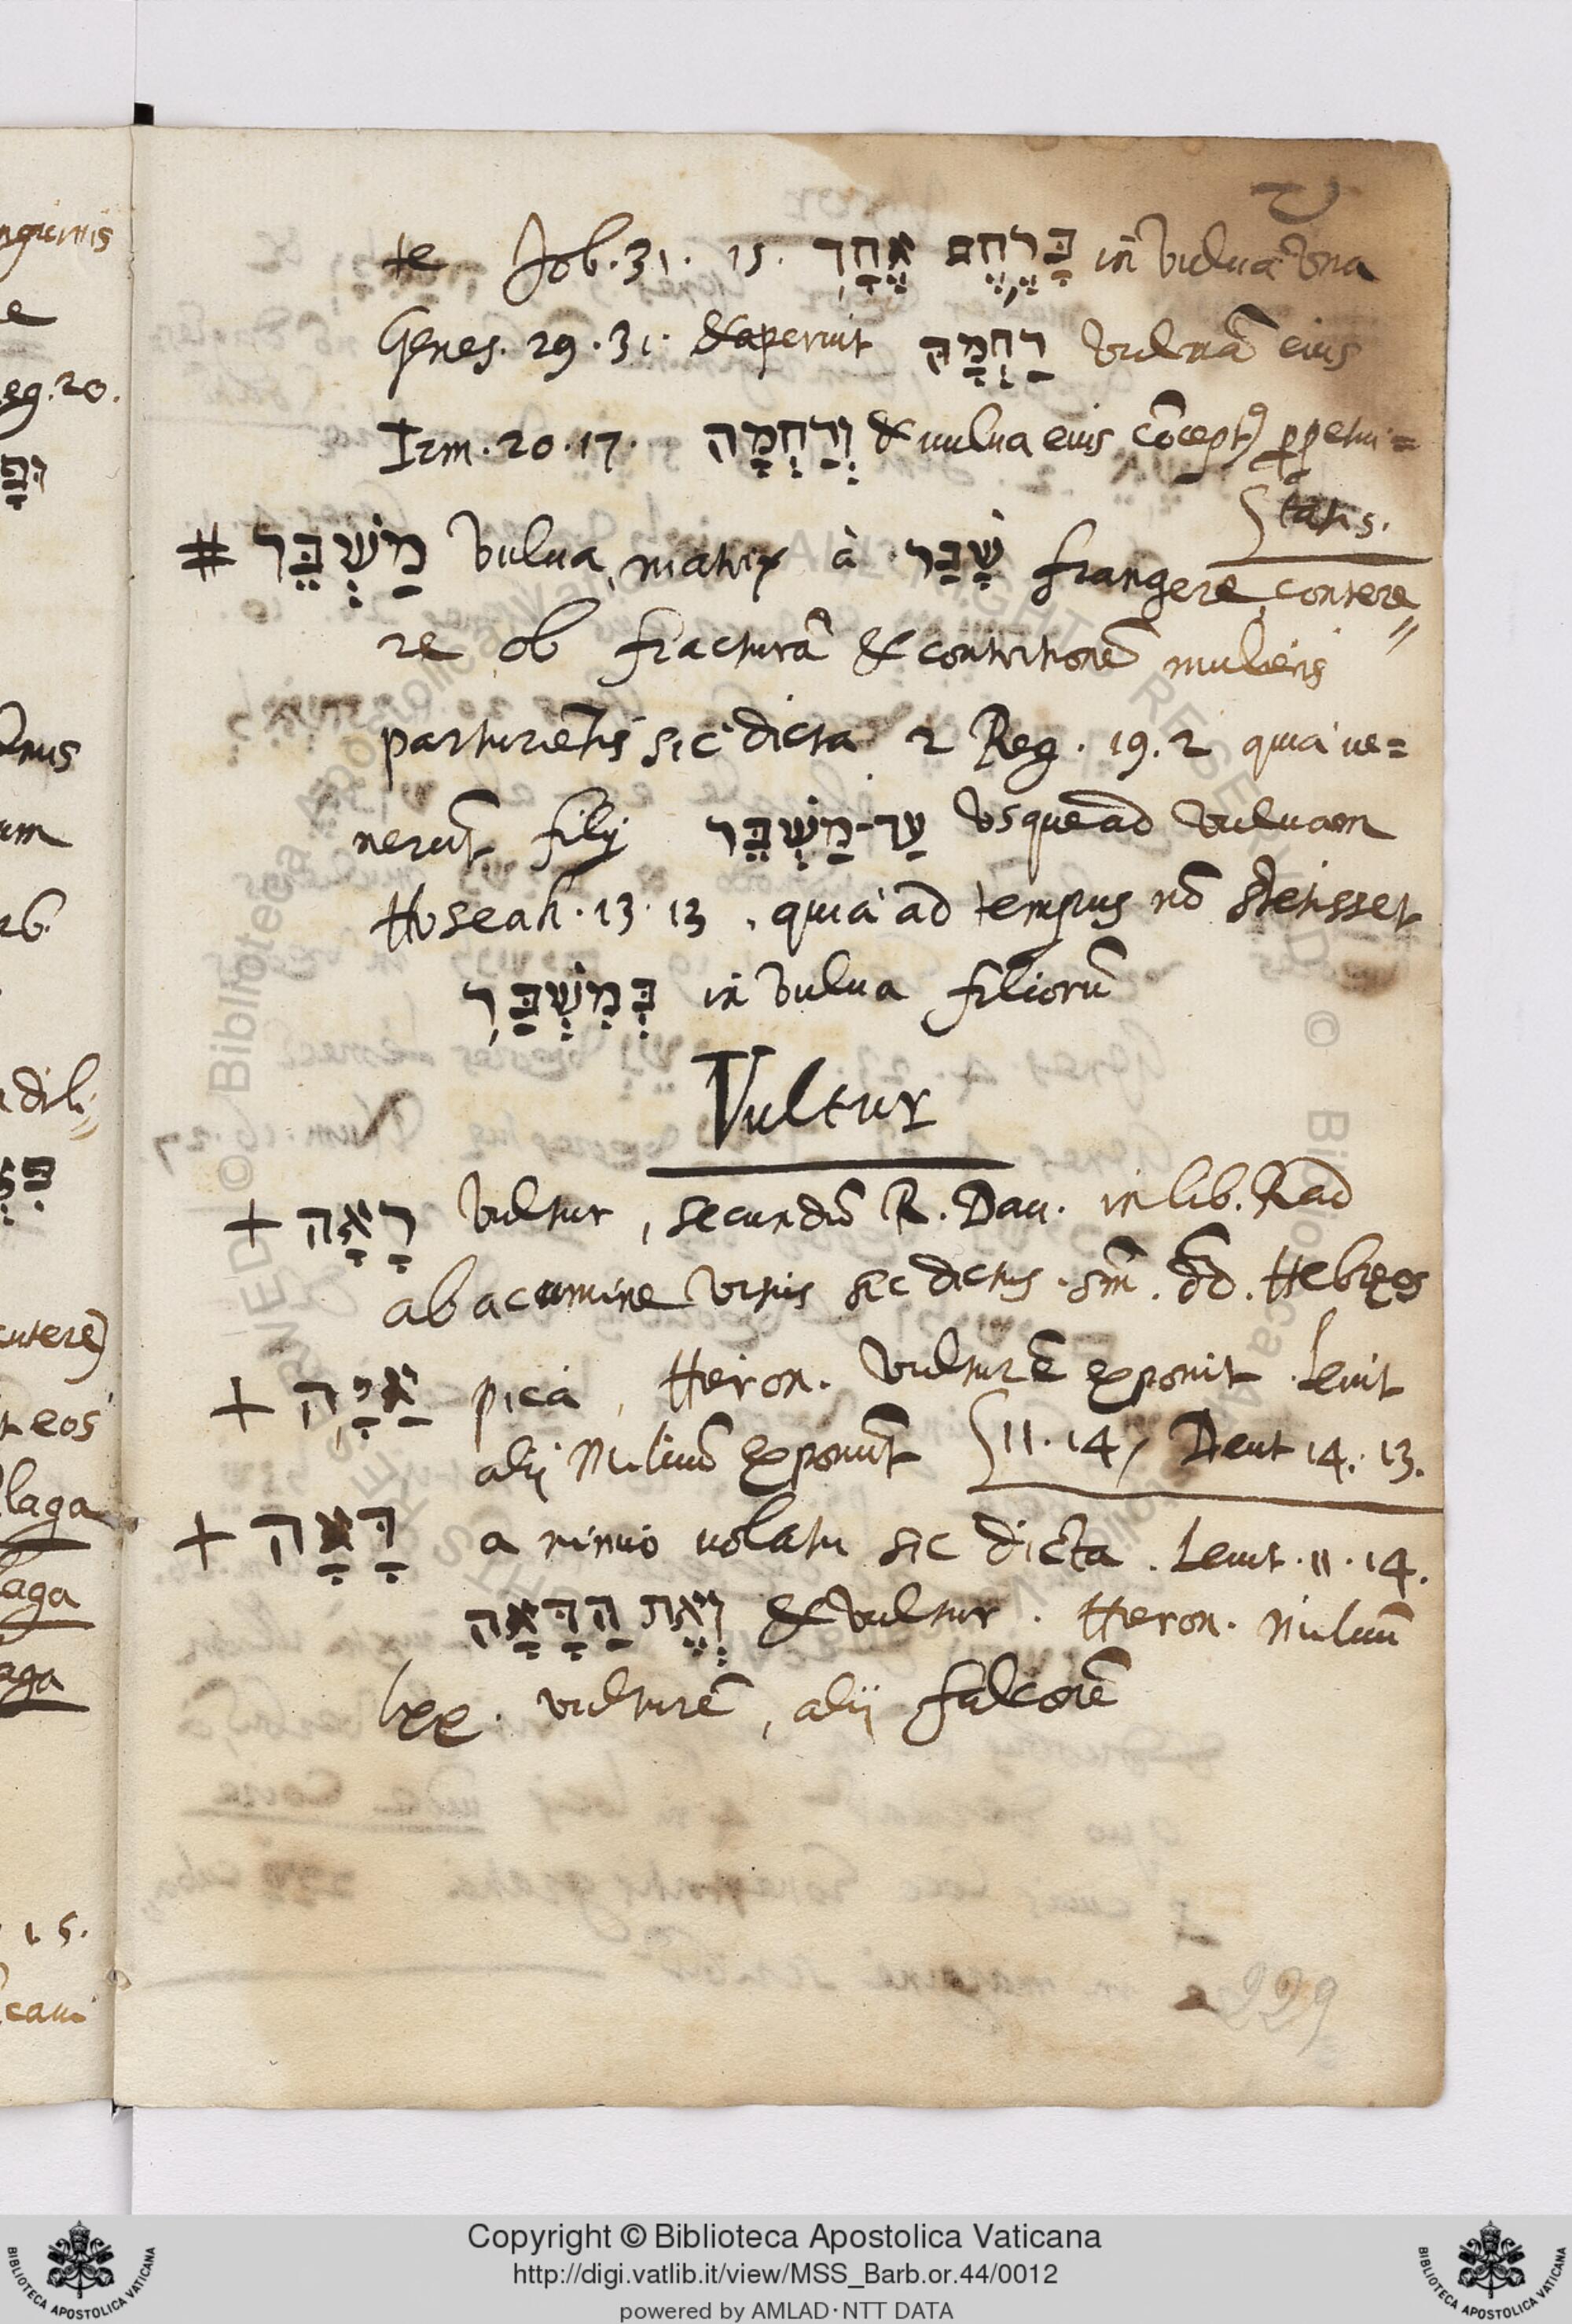 te Job. 31. 15. בָּרֶ֣חֶם אֶחָֽד in vulua vna
Genes. 29. 31. & aperuit רַחְמָהּ vuluā eius
Irm. 20. 17. וְרַחְמָהּ & uulua eius cōcept9 ꝑpetui=
tatis.
# מַשְׁבֵּר vulua, matrix à שָׁבַר frangere, contere
re ob fracturā & contritionē mulieris
parturiētis sic dicta 2 Reg. 19. 2 quia ue=
nerūt filij עַד־מַשְׁבֵּר vsque ad vuluam
Hoseah. 13. 13. quia ad tempus nō stetisset
בְּמִשְׁבַּֽר in vulua filiorū
Vultur
+ רָאָה vultur, secundū R. Dau. in lib. Rad
ab acumine visus sic dictus. sm̄. Hebręos
+ אַיָּֽה pica, Heiron. vulturē exponit Leuit
alij Miluū exponūt 11. 14, Deut 14. 13.
+ דָּאָה a nimio uolatu sic dicta. Leuit. 11. 14.
וְאֶת הַדָּאָה & vultur. Heron. Miluū
lxx. vulturē, alij falconē
229
ngiunis
e
eg. 20.
um
26.
dili
cutere)
t eos
laga
laga
aga
15.
cani
© Biblioteca Apostolica Vaticana
Copyright © Biblioteca Apostolica Vaticana
http://digi.vatlib.it/view/MSS_Barb.or.44/0012
powered by AMLAD·NTT DATA
BIBLIOTECA APOSTOLICA VATICANA
BIBLIOTECA APOSTOLICA VATICANA